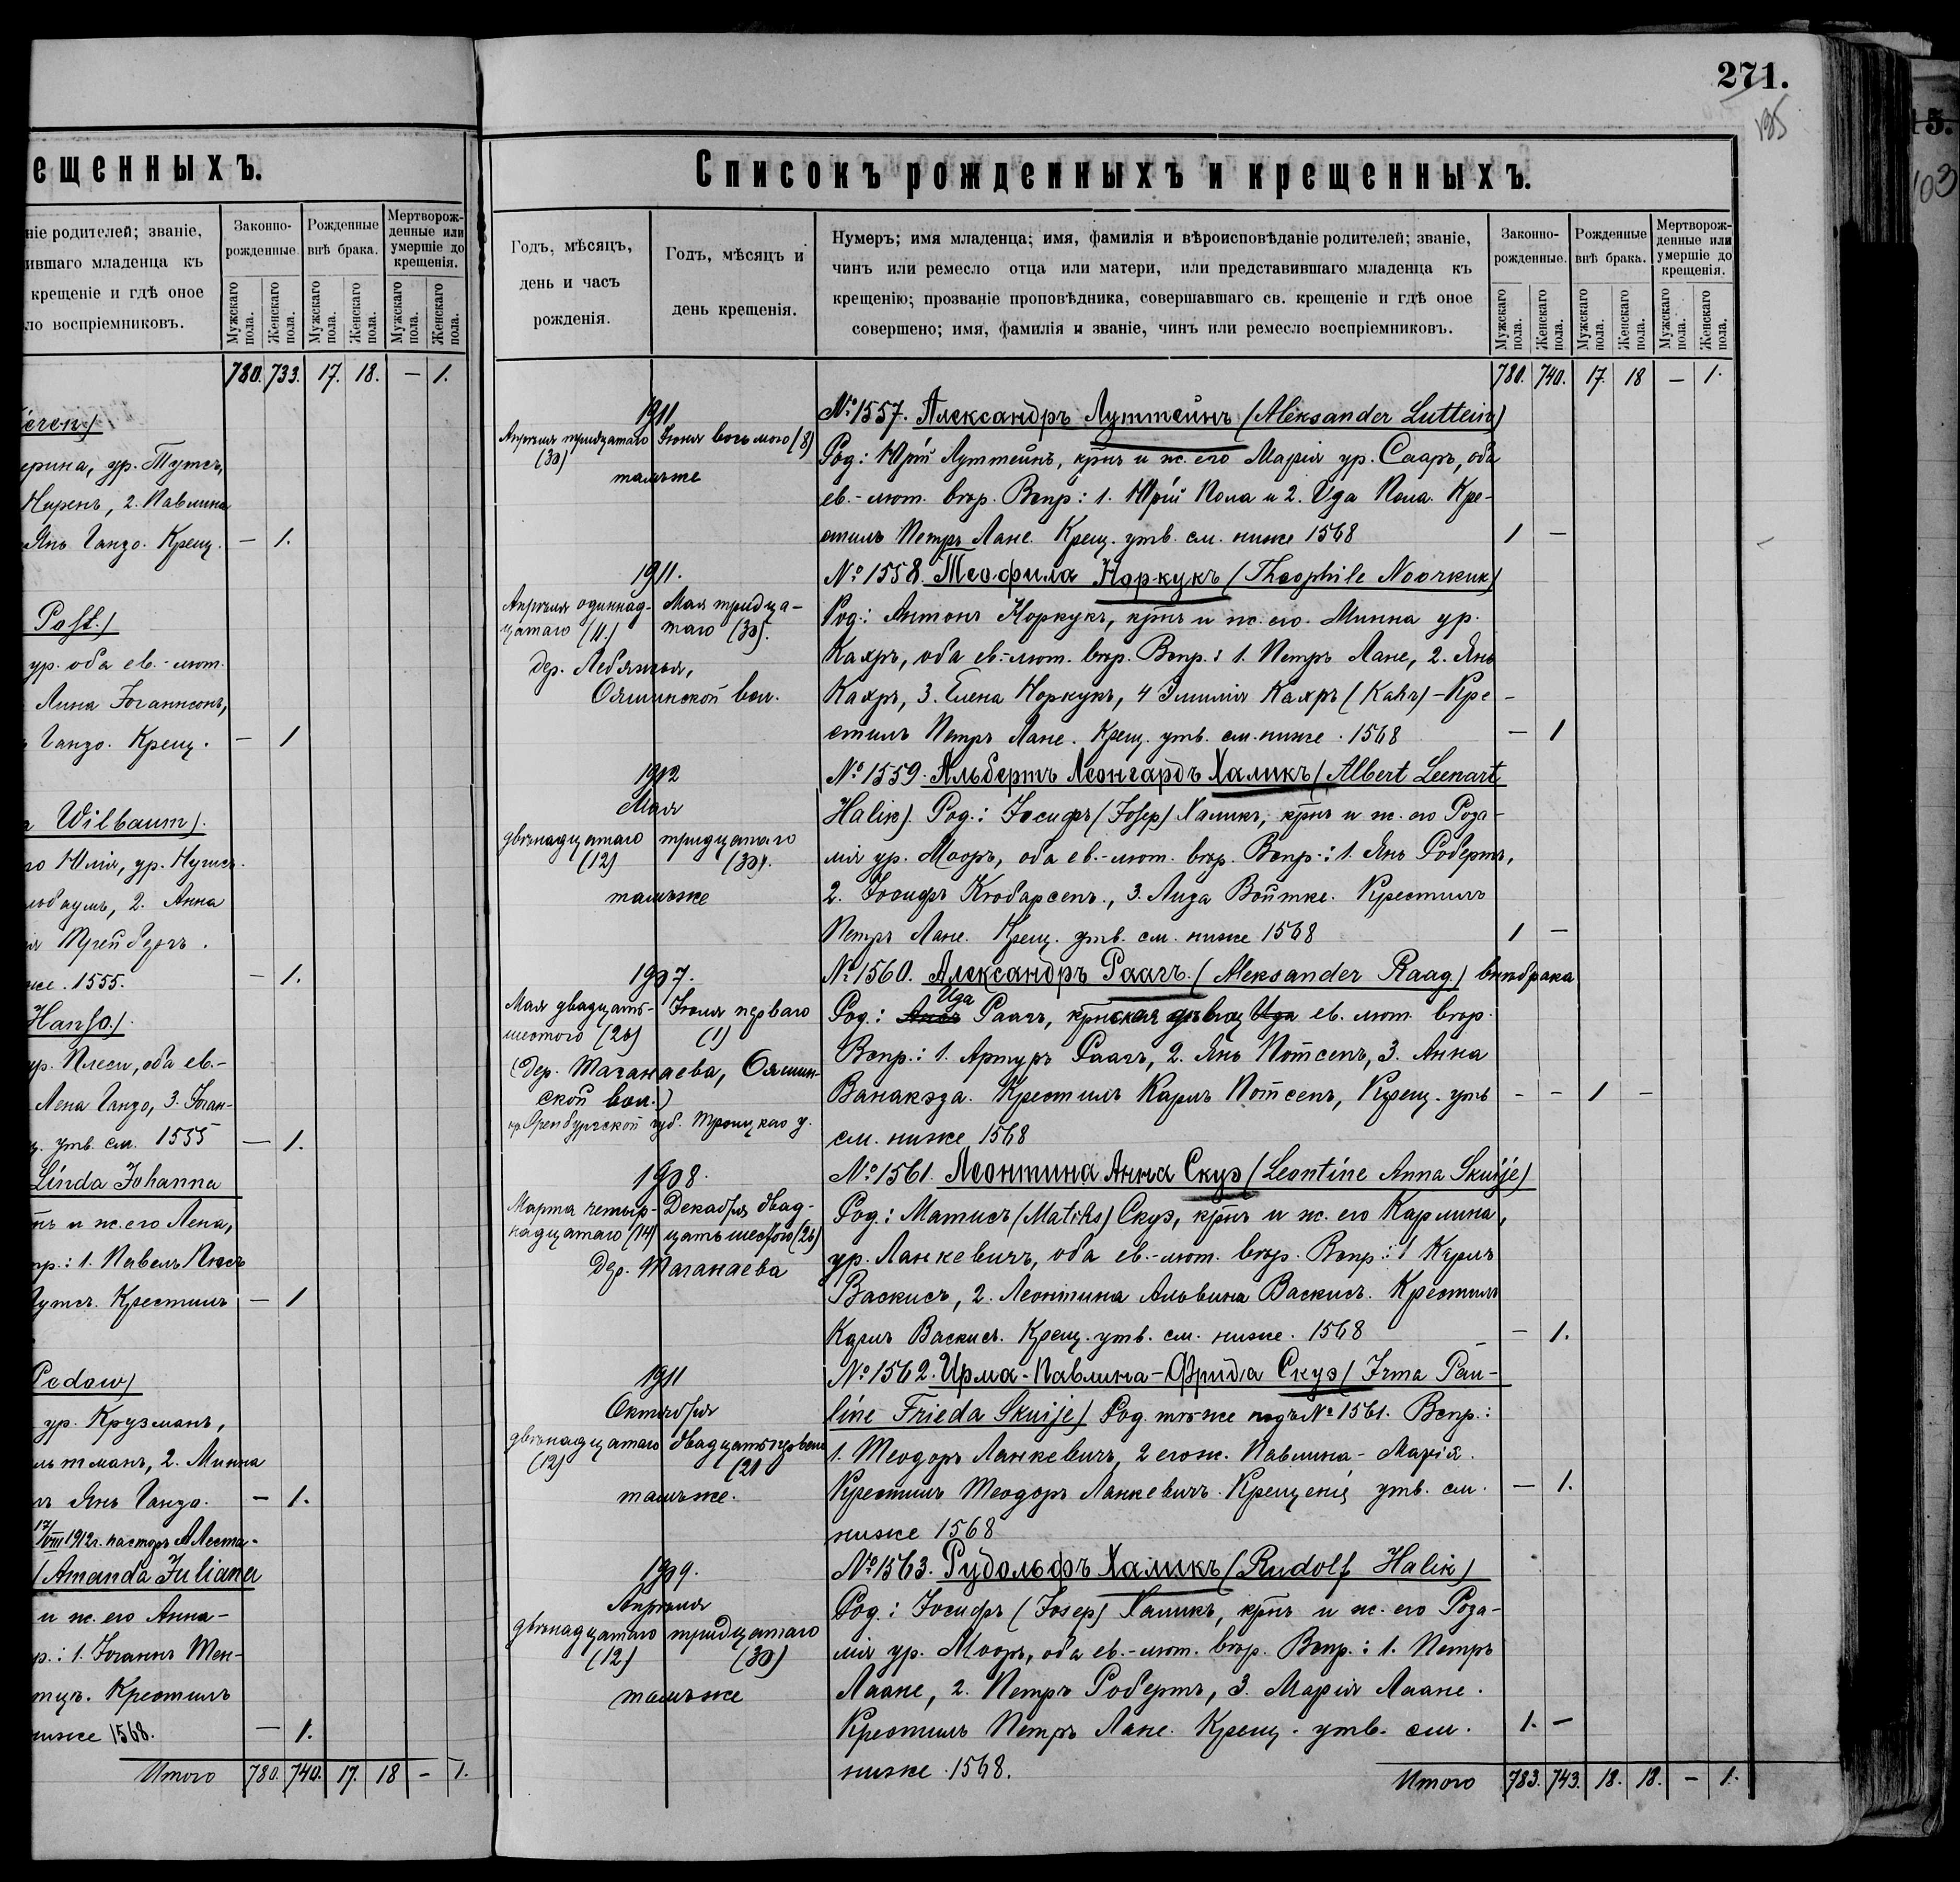 ещенныхъ.
ніе родителей; званіе,
ившаго младенца къ
крещеніе и гдѣ оное
ло воспріемниковъ.
Законно-
рожденные.
Рожденные
внѣ брака.
Мертворож-
денные или
умершіе до
крещенія.
Мужскаго пола.
Женскаго пола.
Мужскаго пола.
Женскаго пола.
Мужскаго пола.
Женскаго пола.
780. 733. 17. 18. — 1.
ерина, ур. Тутсъ,
Нирень, 2. Павлина
Янъ Гандо. Крещ. — 1.
Past.)
ур. оба ев.-лют.
Лина Іогансонъ,
Гандо. Крещ. — 1
Wilbaum).
го Юлія, ур. Нугисъ.
льбаумъ, 2. Анна
ія Трейбергъ.
же. 1555. — 1.
Hanso.)
ур. Плеси, оба ев.-
Лена Гандо, 3. Іоган-
утв. см. 1555 — 1.
Linda Johanna
нъ и ж. его Лена,
пр.: 1. Павелъ
Крестилъ — 1
Pedow)
ур. Крузманъ,
льтманъ, 2. Минна
лъ Янъ Гандо. — 1.
17/VIII 1912 г. пасторъ А Леста-
(Amanda Juliana
и ж. его Анна-
р.: 1. Іоганъ Мен-
Крестилъ
ниже 1568. — 1.
Итого 780. 740. 17. 18 — 1.
271.
135
Списокъ рожденныхъ и крещенныхъ.
Годъ, мѣсяцъ,
день и часъ
рожденія.
Годъ, мѣсяцъ и
день крещенія.
Нумеръ; имя младенца; имя, фамилія и вѣроисповѣданіе родителей; званіе,
чинъ или ремесло отца или матери, или представившаго младенца къ
крещенію; прозваніе проповѣдника, совершавшаго св. крещеніе и гдѣ оное
совершено; имя, фамилія и званіе, чинъ или ремесло воспріемниковъ.
Законно-
рожденные.
Рожденные
внѣ брака.
Мертворож-
денные или
умершіе до
крещенія.
Мужскаго пола.
Женскаго пола.
Мужскаго пола.
Женскаго пола.
Мужскаго пола.
Женскаго пола.
780. 740. 17. 18 — 1.
1911
Апрѣля тридцатаго (30)
Іюня восьмого (8)
тамъже
№ 1557. Александръ Луттейнъ (Aleksander Luttein)
Род: Юрій Луттейнъ, крнъ и ж. его Марія ур. Сааръ, оба
ев.-лют. вѣр. Вспр: 1. Юрій Пола и 2. Ида Пола. Кре-
стилъ Петръ Лане. Крещ. утв. см. ниже 1568 1 —
1911.
Апрѣля одиннад-
цатаго (11.)
Мая тридца-
таго (30).
дер. Лебяжья,
Ояшинской вол.
№ 1558. Теофила Норкукъ (Theophile Noorkuk)
Род: Антонъ Норкукъ, крнъ и ж. его Минна ур.
Кахръ, оба ев.-лют. вѣр. Вспр: 1. Петръ Лане, 2. Янъ
Кахръ, 3. Елена Норкукъ, 4 Эмилія Кахръ (Kahr) – Кре-
стилъ Петръ Лане. Крещ. утв. см. ниже. 1568 — 1
1912
Мая
двѣнадцатаго
(12)
тридцатаго
(30).
тамъже
№ 1559. Альбертъ Леонгардъ Халикъ (Albert Leenart
Halik) Род: Іосифъ (Josep) Халикъ, крнъ и ж. его Роза-
лія ур. Мооръ, оба ев.-лют. вѣр. Вспр: 1. Янъ Робертъ,
2. Іосифъ Кюбарсепъ., 3. Лида Войтке. Крестилъ
Петръ Лане. Крещ. утв. см. ниже 1568 1 —
1907.
Мая двадцать-
шестого (26)
Іюля перваго
(1)
(дер. Таганаева, Ояшин-
ской вол.)
Оренбургской губ. Троицкаго у.
№ 1560. Александръ Раагъ. (Aleksander Raag) внѣ брака
Ида
Род: Раагъ, крнская дѣвиц Ида ев. лют. вѣр.
Вспр: 1. Артуръ Раагъ, 2. Янъ Потсепъ, 3. Анна
Ванакэза. Крестилъ Карлъ Потсепъ, Крещ. утв — — 1 —
см. ниже 1568
1908.
Марта четыр-
надцатаго (14)
Декабря двад-
цать шестого (26)
Дер. Таганаева
№ 1561. Леонтина Анна Скуэ (Leontine Anna Skuije)
Род: Матисъ (Matihs) Скуэ, крнъ и ж. его Карлина,
ур. Ланкевичъ, оба ев.-лют. вѣр. Вспр: 1 Карлъ
Васкисъ, 2. Леонтина Альвина Васкисъ. Крестилъ
Карлъ Васкисъ. Крещ. утв. см. ниже. 1568 — 1.
1911
Октября
двѣнадцатаго
(12)
двадцатьперваго
(21
тамъже.
№ 1562. Ирма-Павлина-Фрида Скуэ (Irma Pau-
line Frieda Skuije) Род. тѣже подъ № 1561. Вспр:
1. Теодоръ Ланкевичъ, 2 егож. Павлина-Марія.
Крестилъ Теодоръ Ланкевичъ. Крещеніе утв. см. — 1.
ниже 1568
1909.
Апрѣля
двѣнадцатаго
(12)
тридцатаго
(30)
тамъже
№ 1563. Рудольфъ Халикъ (Rudolf Halik)
Род: Іосифъ (Josep) Халикъ, крнъ и ж. его Роза-
лія ур. Мооръ, оба ев.-лют. вѣр. Вспр: 1. Петръ
Лаане, 2. Петръ Робертъ, 3. Марія Лаане.
Крестилъ Петръ Лане. Крещ. утв. см. 1. —
ниже. 1568.
Итого 783. 743. 18. 18. — 1.
5.
103